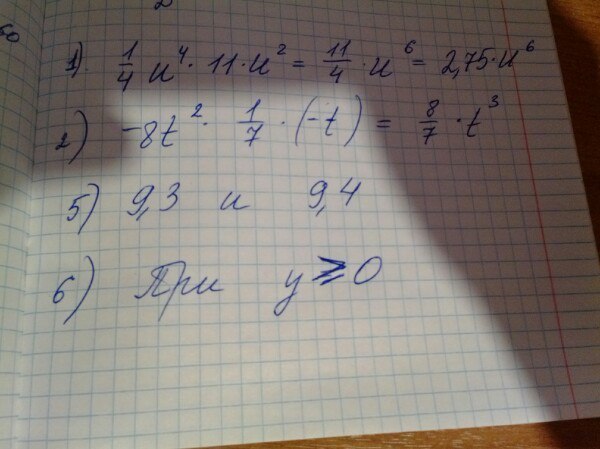 1). 1/4 u⁴ · 11 · u² = 11/4 · u⁶ = 2,75 · u⁶
2) -8t² · 1/7 · (-t) = 8/7 · t³
5) 9,3 и 9,4
6) При y ≥ 0